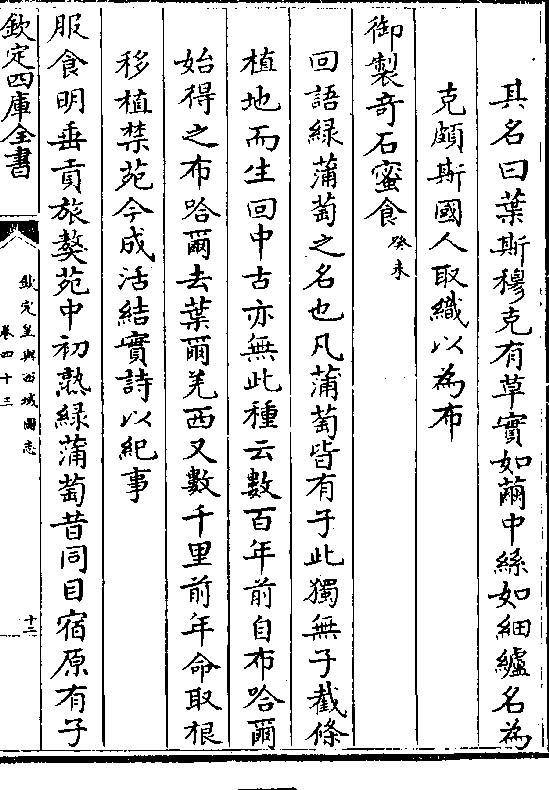 其名曰葉斯穆克有草實如繭中絲如細纑名為
克頗斯國人取織以為布
御製竒石蜜食癸未
回語綠蒲萄之名也凡蒲萄皆有子此獨無子截條
植地而生回中古亦無此種云數百年前自布哈爾
始得之布哈爾去葉爾羌西又數千里前年命取根
移植禁苑今成活結實詩以紀事
服食明垂貢旅獒苑中初熟綠蒲萄昔同目宿原有子
欽定四庫全書
欽定皇輿西域圖志
卷四十三
十二